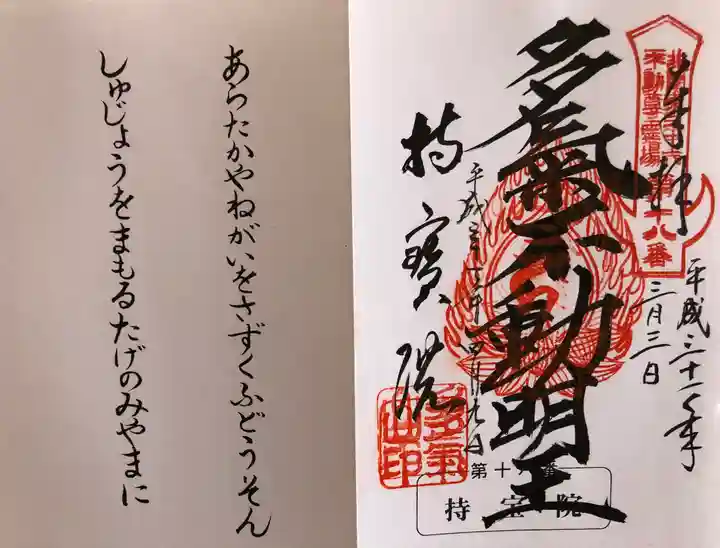 不動尊霊場第十八番
奉拝
平成三十一年
三月三日
多氣不動明王
平成三十一年四月九日
持寳院
多氣山印
第十八番
持宝院
あらたかやねがいをさずくふどうそん
しゅじょうをまもるたげのみやまに